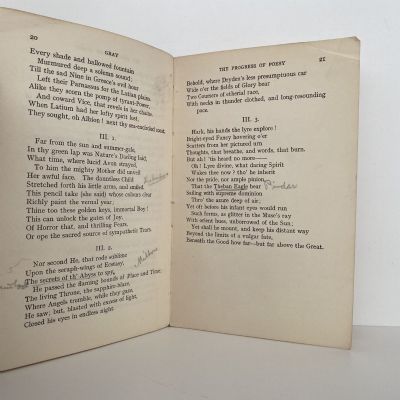 20 GRAY
Every shade and hallowed fountain
Murmured deep a solemn sound;
Till the sad Nine in Greece's evil hour
Left their Parnassus for the Latian plains.
Alike they scorn the pomp of tyrant-Power,
And coward Vice, that revels in her chains.
When Latium had her lofty spirit lost,
They sought, oh Albion! next thy sea-encircled coast.
III. 1.
Far from the sun and summer-gale,
In thy green lap was Nature's Darling laid,
What time, where lucid Avon strayed,
To him the mighty Mother did unveil
Her awful face. The dauntless Child
Stretched forth his little arms, and smiled.
This pencil take (she said) whose colours clear
Richly paint the vernal year.
Thine too these golden keys, immortal Boy!
This can unlock the gates of Joy.
Of Horror that, and thrilling Fears,
Or ope the sacred source of sympathetic Tears.
III. 2.
Nor second He, that rode sublime
Upon the seraph-wings of Ecstasy,
The secrets of th' Abyss to spy,
He passed the flaming bounds of Place and Time:
The living Throne, the sapphire-blaze,
Where Angels tremble, while they gaze,
He saw; but, blasted with excess of light,
Closed his eyes in endless night.
THE PROGRESS OF POESY 21
Behold, where Dryden's less presumptuous car
Wide o'er the fields of Glory bear
Two Coursers of etherial race,
With necks in thunder clothed, and long-resounding
pace.
III. 3.
Hark, his hands the lyre explore!
Bright-eyed Fancy hovering o'er
Scatters from her pictured urn
Thoughts, that breathe, and words, that burn.
But ah! 'tis heard no more——
Oh! Lyre divine, what daring Spirit
Wakes thee now? tho' he inherit
Nor the pride, nor ample pinion,
That the Theban Eagle bear Pindar
Sailing with supreme dominion
Thro' the azure deep of air;
Yet oft before his infant eyes would run
Such forms, as glitter in the Muse's ray
With orient hues, unborrowed of the Sun:
Yet shall he mount, and keep his distant way
Beyond the limits of a vulgar fate,
Beneath the Good how far—but far above the Great.